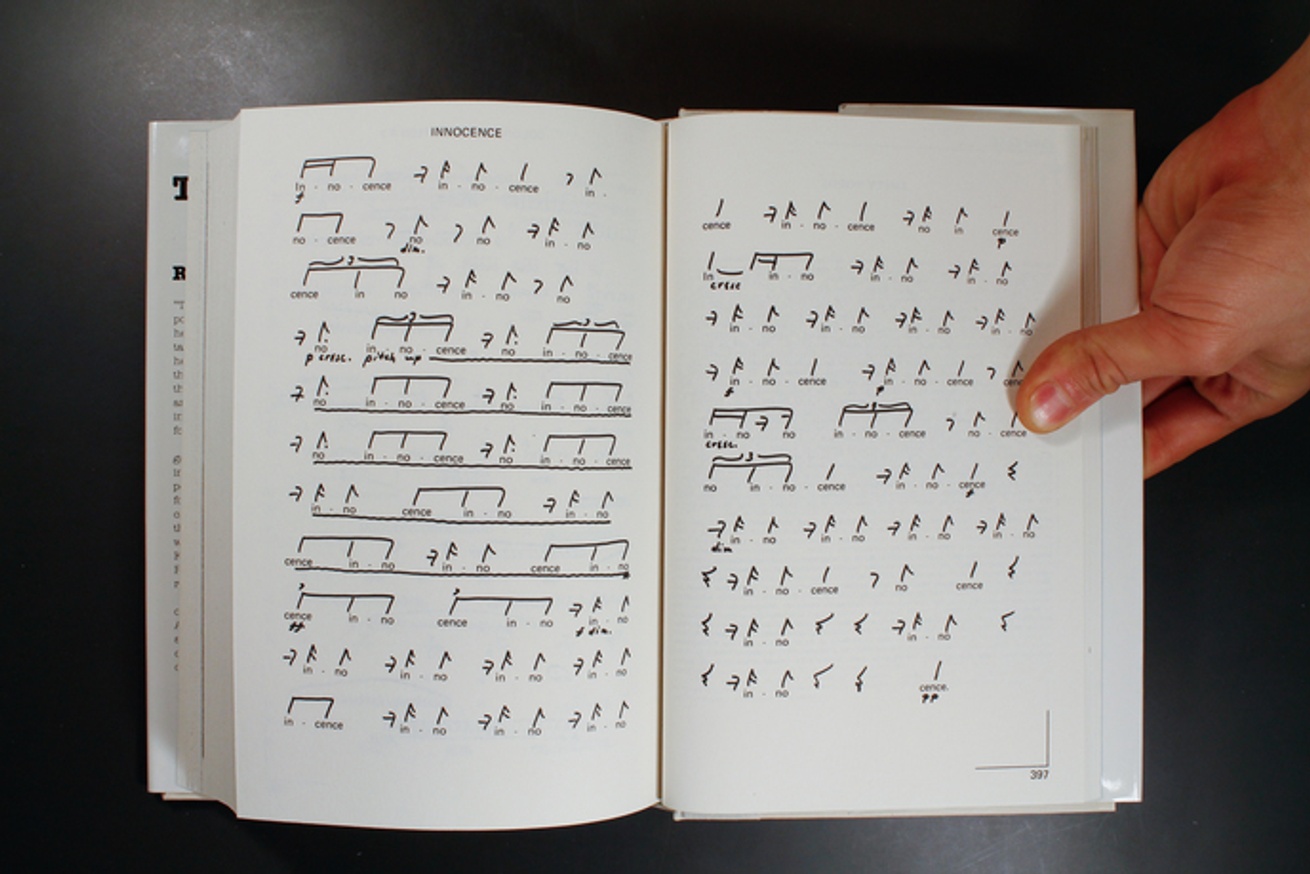 INNOCENCE
In - no - cence in - no - cence in -
f
no - cence no no in - no
dim.
cence in no in - no no
no in - no - cence no in - no - cence
p cresc. pitch up
no in - no - cence no in - no - cence
no in - no - cence no in - no - cence
in - no cence in - no in - no
cence in - no in - no cence in - no
cence in - no cence in - no in - no
ff f dim.
in - no in - no in - no in - no
in - cence in - no in - no in - no
cence in - no - cence no in cence
p
In in - no in - no in - no
cresc
in - no in - no in - no in - no
in - no - cence in - no - cence
f p
in - no no in - no - cence no cence
cresc.
3
no in - no - cence in - no - cence
f
in - no in - no in - no in - no
dim
in - no - cence no cence
in - no in - no
in - no cence.
pp
397
T
R